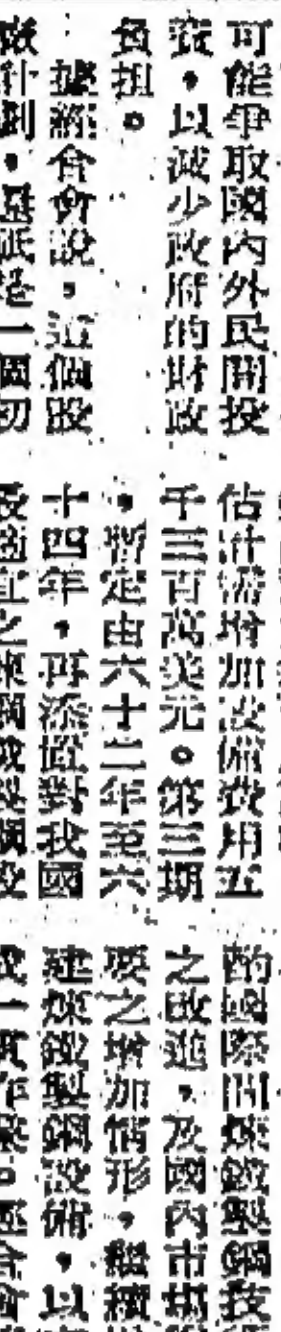 可能爭取國內外民間投
資，以減少政府的財政
負担。
據經合會說，這個設
廠計劃，是祇是一個初
估計需增加設備費用五
千三百萬美元。第三期
，暫定由六十二年至六
十四年，再添置對我國
最適宜之煉鋼或製鋼設
酌國際間煉鐵製鋼技
之改進，及國內市場
要之增加情形，繼續
建煉鐵製鋼設備，以
成一貫作業。經合會